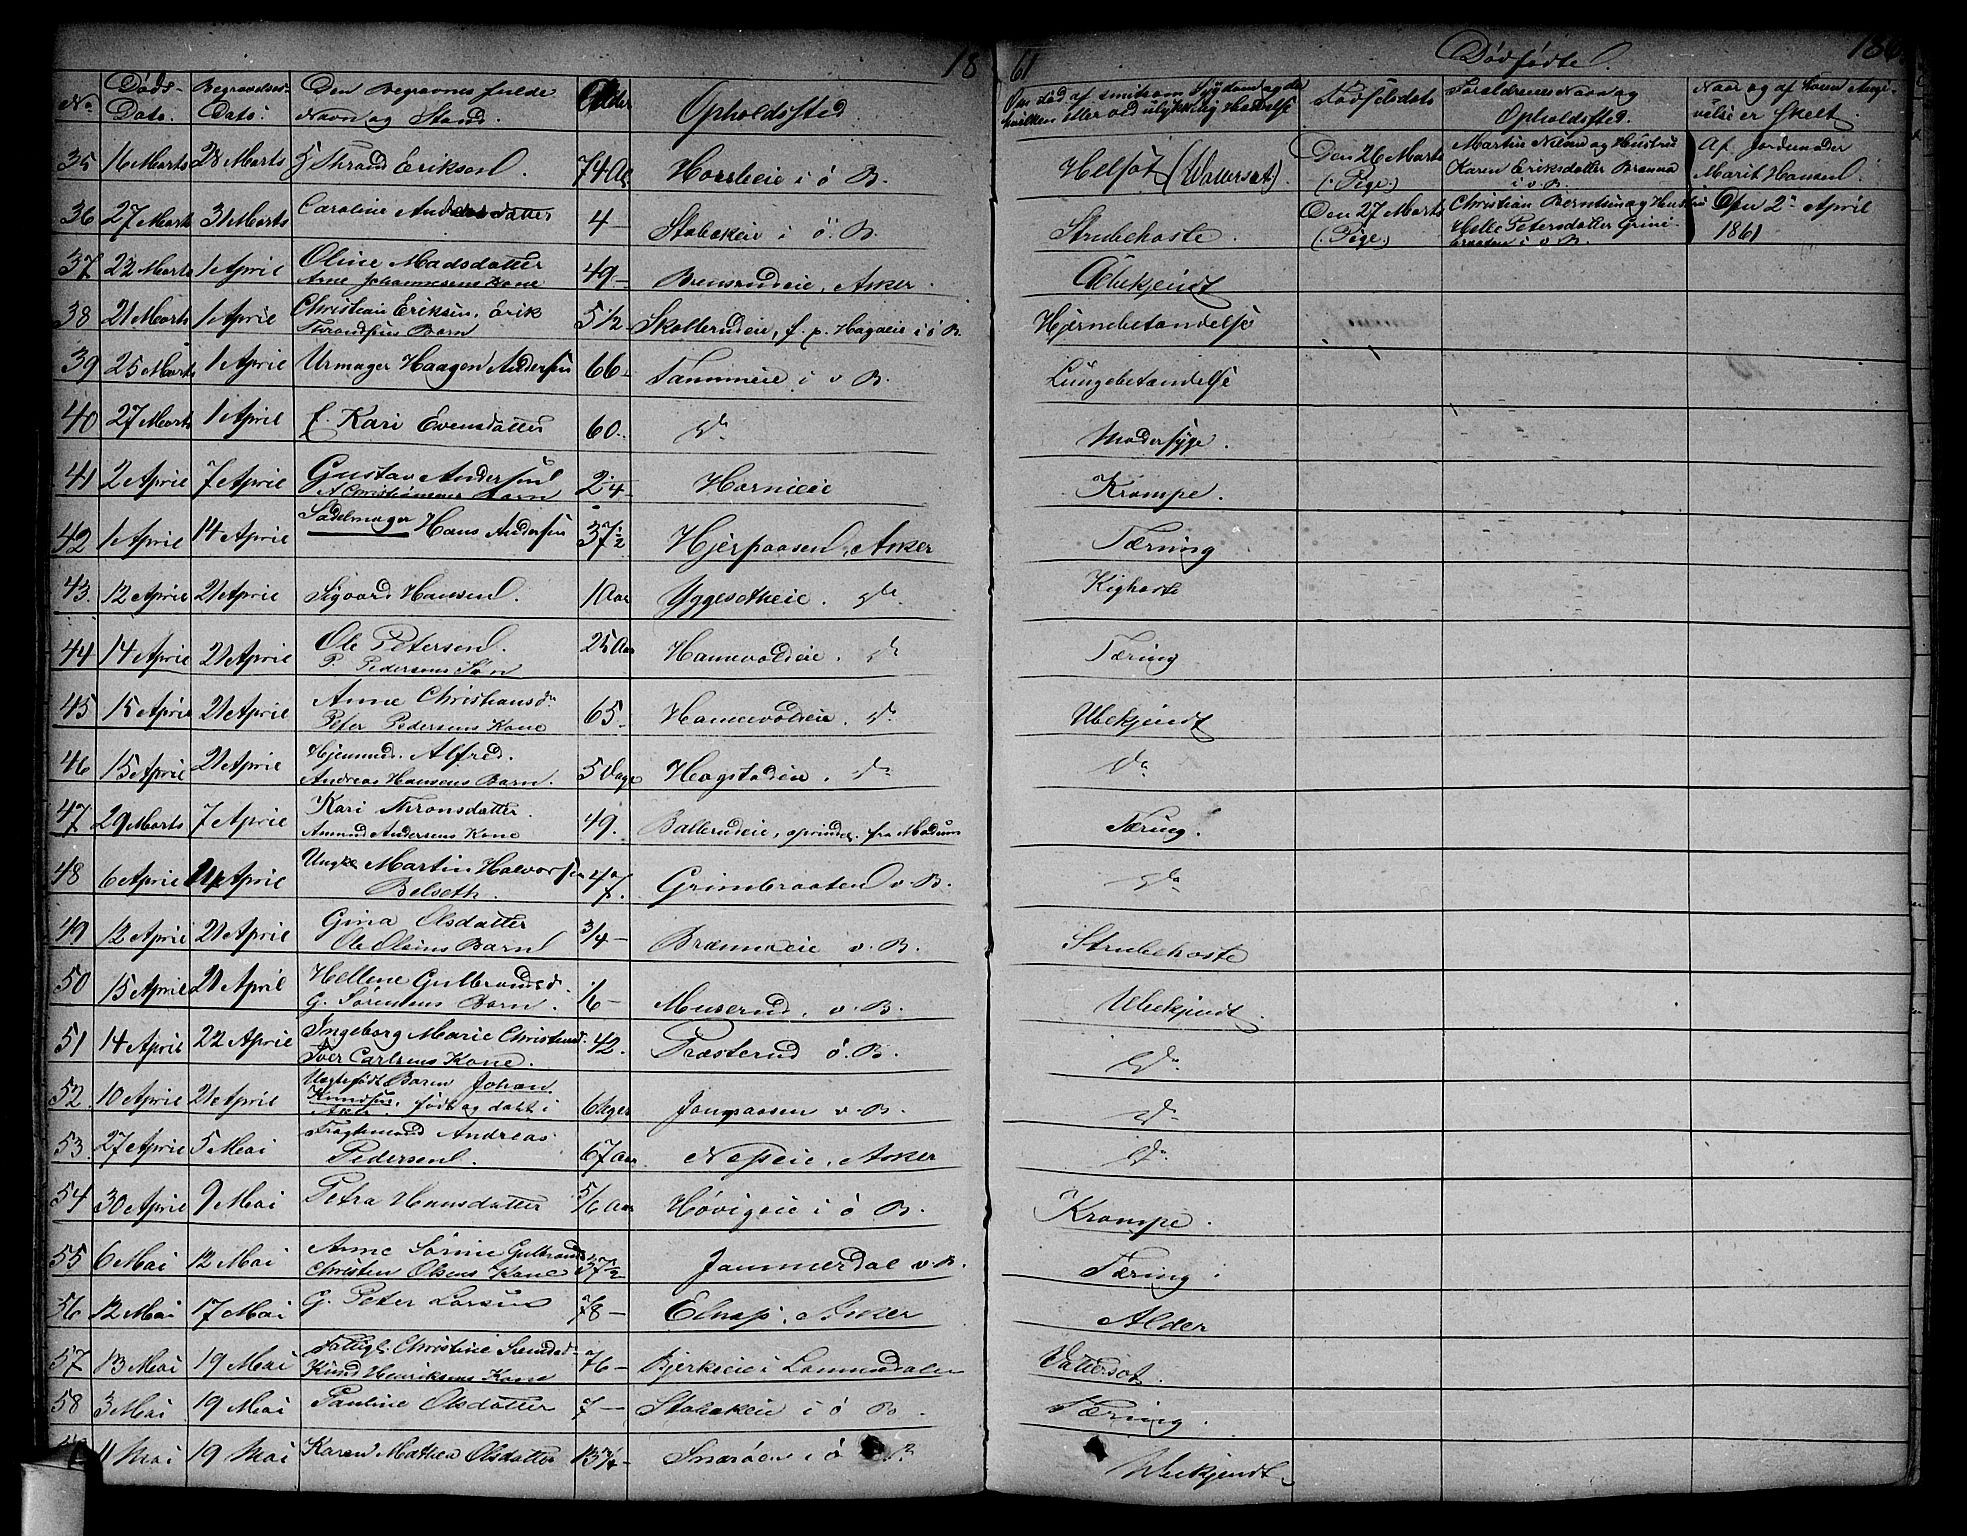 1861
Dødfødte.
186
No
Døds-Dato.
Begravelses-Dato.
Den Begravnes fulde Navn og Stand.
Alder
Opholdssted
Om død af smitsom Sygdom og da hvilken eller ved ulykkelig Hændelse
Fødselsdato
Forældrenes Navn og Opholdssted.
Naar og af hvem Angivelse er skeet.
35 16 Marts 28 Marts G Thrand Eriksen. 74 Aar i ö B. Helsot (Vatersot)
Den 26 Marts (: Pige.) Martin Nilsen og Hustru Karen Eriksdatter i v B. Af Jordmoder Marit Hansen
36 27 Marts 31 Marts Caroline Andersdatter 4 - Stabækeie i ö. B. Strubehoste.
Den 27 Marts (: Pige.) Christian Berntsen og Hustru Helle Petersdatter Grinibraaten i v B. Den 2n April 1861
37 22 Marts 1 April Oline Madsdatter Arne Johannesens Kone 49 - Bensrudeie, Asker. Ubekjendt
38 21 Marts 1 April Christian Eriksen, Erik Thrandsens Barn 5 1/2 Skollerudeie, f. p. Hagaeie i ö B. Hjernebetændelse
39 25 Marts 1 April Urmager Haagen Andersen 66 - Tanumeie i v B. Lungebetændelse
40 27 Marts 1 April f. Kari Evensdatter 60. do Modersyge.
41 2 April 7 April Gustav Andersen A Christiansens Barn 2 1/4 Hornieie Krampe.
42 1 April 14 April Sadelmager Hans Andersen 37 1/2 Hjerpaasen, Asker Tæring
43. 12 April 21 April Sigvard Hansen. 1 Aar Yggesetheie. do. Kighoste
44 14 April 21 April Ole Petersen. P. Pedersens Søn 25 Aar Hanevoldeie. do Tæring
45 15 April 21 April Anne Christiansdr Peter Pedersens Kone 65. Hanevoldeie. do. Ubekjendt
46 15 April 21 April Hjemmed. Alfred. Andreas Hansens Barn. 5 Dage Hogstadeie. do do
47 29 Marts 7 April Kari Thronsdatter. Amund Andersens Kone 49. Ballerudeie, oprindel. fra Modum Tæring.
48 6 April 14 April Ungk. Martin Halvorsen Belseth. 47. Grinibraaten v. B. do
49 12 April 21 April Gina Olsdatter Ole Olsens Barn 3/4 - Brænnaeie v. B. Strubehoste
50 15 April 21 April Hellene Gulbrandsd. G. Sørensens Barn. 1/6 - Muserud, v. B. Ubekjendt.
51 14 April 22 April Ingeborg Marie Christensd. Iver Carlsens Kone. 42. Præsterud ö. B. do
52. 10 April 21 April Uægtefødt Barn Johan Knudsen. født og døbt i Aker 6 Uger v. B. do
53 27 April 5 Mai Andreas Pedersen. 67 Aar Neseie, Asker do
54 30 April 9 Mai Petra Hansdatter 5/6 Aar Høvigeie i ö B. Krampe.
55 6 Mai 12 Mai Anne Sørine Gulbrandsd. Christen Olsens Kone 37 1/2 Jammerdal v. B. Tæring.
56 12 Mai 17 Mai G. Peter Larsen 78 - Elnæs, Asker Alder
57 13 Mai 19 Mai Fattigl. Christine Knud Henriksens Kone 76 - Bjerkeeie i Lommedalen Vattersot.
58 3 Mai 19 Mai Pauline Olsdatter 7 - Stabækeie i ö B. Tæring.
11 Mai 19 Mai Karen Mathea Olsdatter 13 3/4 - Snarøen i ö B. Ubekjendt